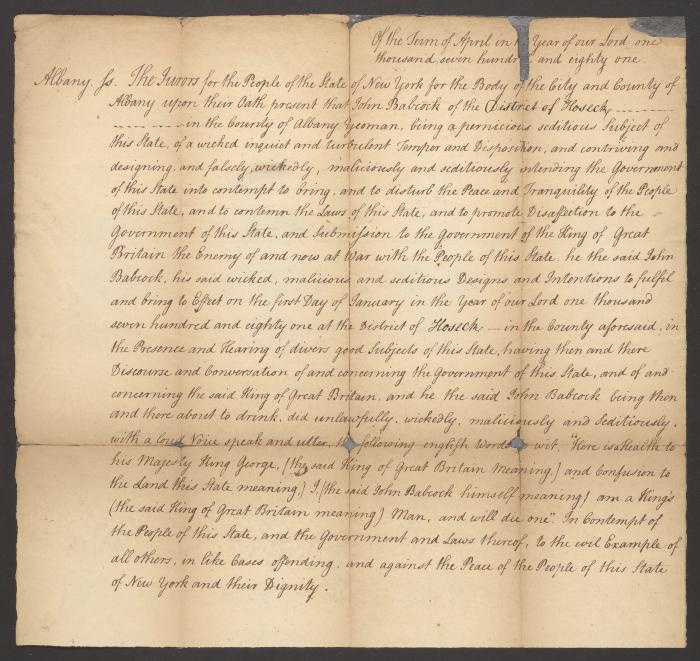 Of the Term of April in Year of our Lord one
thousand seven hundred and eighty one.
Albany, ss. The Jurors for the People of the State of New York for the Body of the City and County of
Albany upon their Oath present that John Babcock of the District of Hoseck
in the County of Albany Yeoman, being a pernicious seditious Subject of
this State, of a wicked inquiet and turbulent Temper and Disposition, and contriving and
designing, and falsely, wickedly, maliciously and seditiously intending the Government
of this State into contempt to bring, and to disturb the Peace and Tranquility of the People
of this State, and to contemn the Laws of this State, and to promote Disaffection to the
Government of this State, and Submission to the Government of the King of Great
Britain the Enemy of and now at War with the People of this State. he the said John
Babcock, his said wicked, malicious and seditious Designs and Intentions to fulfil
and bring to Effect on the first Day of January in the Year of our Lord one thousand
seven hundred and eighty one at the District of Hoseck — in the County aforesaid, in
the Presence and Hearing of divers good Subjects of this State, having then and there
Discourse and Conversation of and concerning the Government of this State, and of and
concerning the said King of Great Britain, and he the said John Babcock being then
and there about to drink, did unlawfully, wickedly, maliciously and seditiously,
with a loud Voice speak and utter, following english Words wit, "Here is a Health to
his Majesty King George, (the said King of Great Britain meaning) and Confusion to
the Land this State meaning,) I, (the said John Babcock himself meaning) am a King's
(the said King of Great Britain meaning) Man, and will die one". In Contempt of
the People of this State, and the Government and Laws thereof, to the evil Example of
all others, in like Cases offending, and against the Peace of the People of this State
of New York and their Dignity.